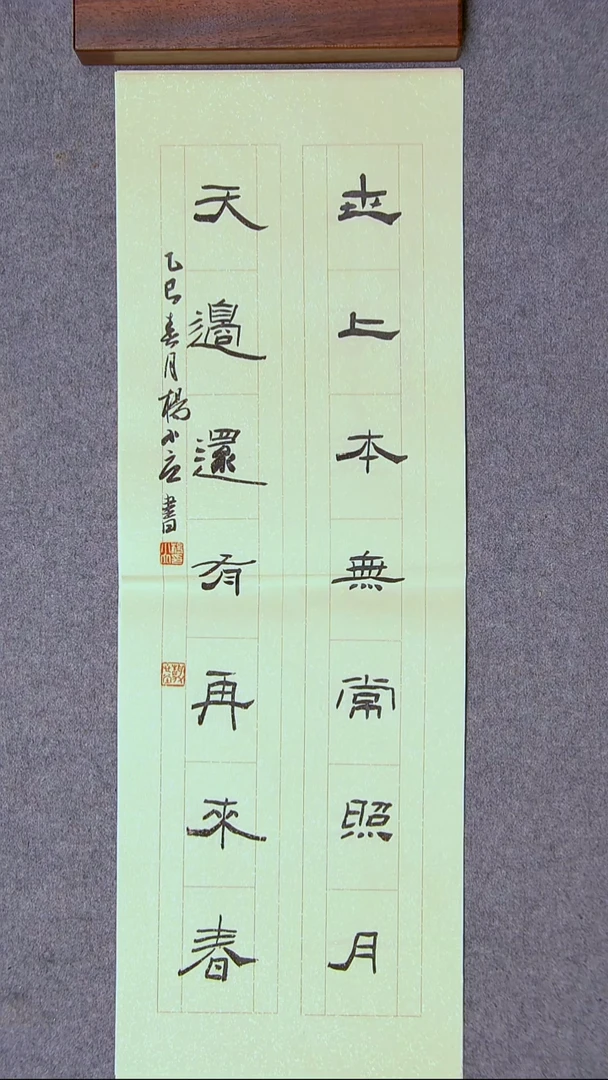 世上本無常照月
天邊還有再來春
乙巳春月楊小立書